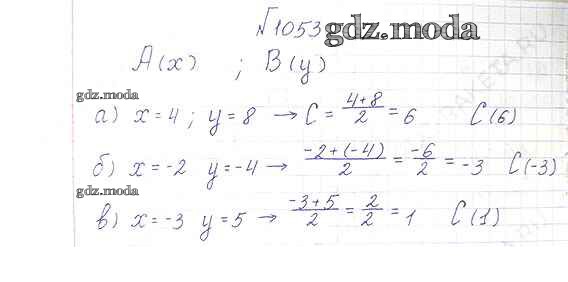 №1053
gdz.moda
A(x) ; B(y)
gdz.moda
а) x=4; y=8 → C = \frac{4+8}{2} = 6 C(6)
б) x=-2 y=-4 → \frac{-2+(-4)}{2} = \frac{-6}{2} = -3 C(-3)
gdz.moda
в) x=-3 y=5 → \frac{-3+5}{2} = \frac{2}{2} = 1 C(1)